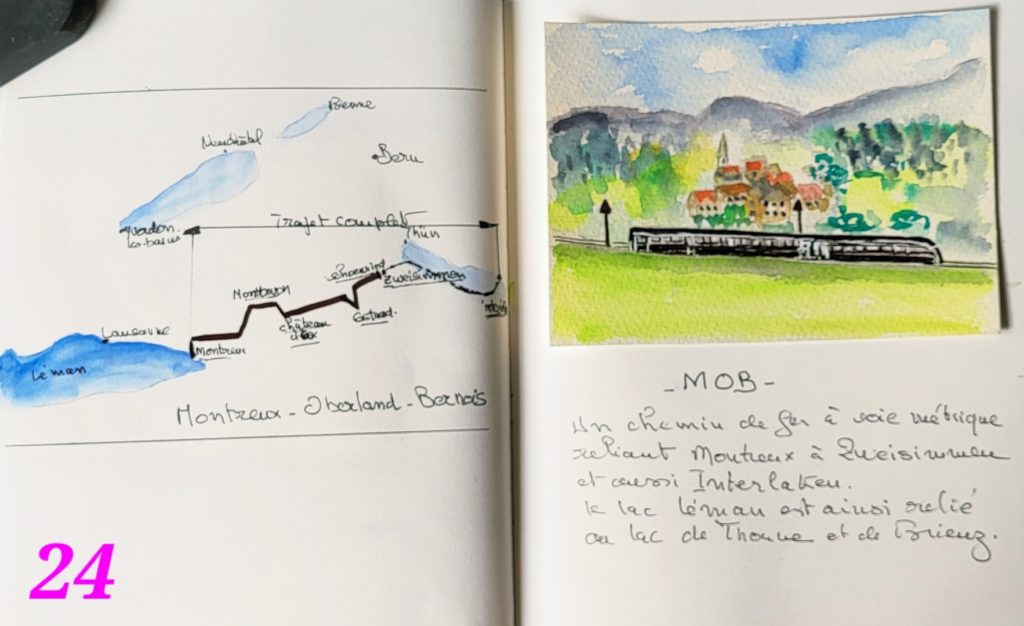 Bienne
Neuchâtel
Bern
Trajet complet
Yverdon
les-bains
Thün
Zweisimmen
Montbovon
château
d'Oex
Gstaad.
Lausanne
Montreux
Léman
Montreux - Oberland - Bernois
24
- MOB -
Un chemin de fer à voie métrique
reliant Montreux à Zweisimmen
et aussi Interlaken.
le lac Léman est ainsi relié
au lac de Thoune et de Brienz.